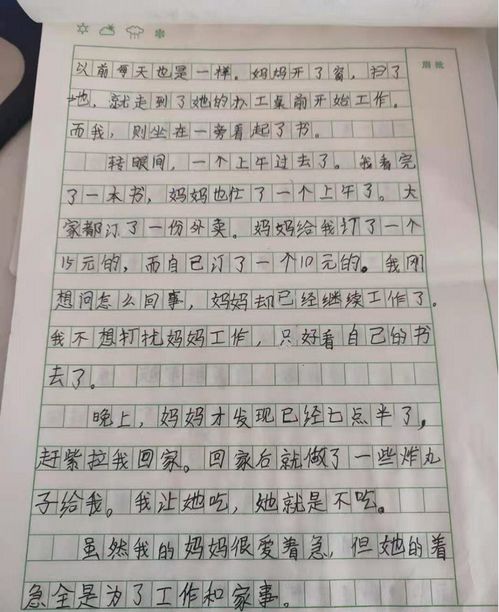 眉批
以前每天也是一样。妈妈开了窗，扫了
地，就走到了她的办工桌前开始工作。
而我，则坐在一旁看起了书。
转眼间，一个上午过去了。我看完
了一本书，妈妈也忙了一个上午了。大
家都订了一份外卖。妈妈给我打了一个
15元的，而自己订了一个10元的。我刚
想问怎么回事，妈妈却已经继续工作了。
我不想打扰妈妈工作，只好看自己的书
去了。
晚上，妈妈才发现已经七点半了，
赶紧拉我回家。回家后就做了一些炸丸
子给我。我让她吃，她就是不吃。
虽然我的妈妈很爱着急，但她的着
急全是为了工作和家事。